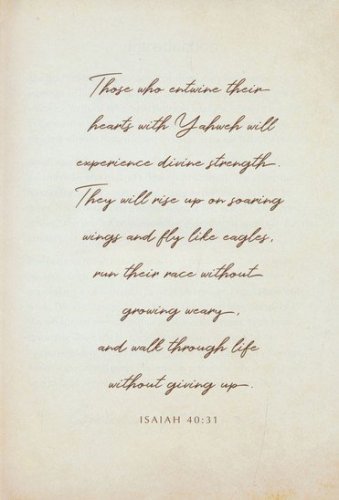 Those who entwine their
hearts with Yahweh will
experience divine strength.
They will rise up on soaring
wings and fly like eagles,
run their race without
growing weary,
and walk through life
without giving up.
ISAIAH 40:31